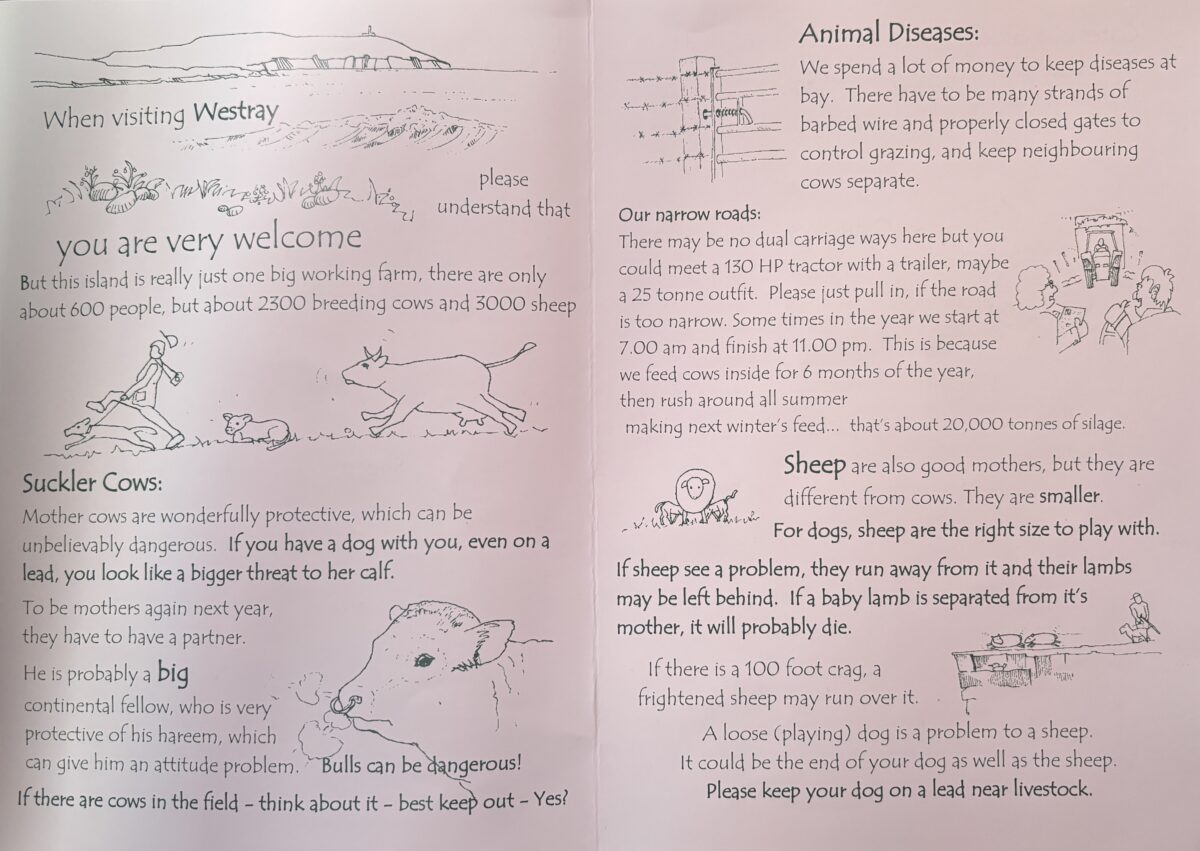 When visiting Westray
please
understand that
you are very welcome
But this island is really just one big working farm, there are only
about 600 people, but about 2300 breeding cows and 3000 sheep
Suckler Cows:
Mother cows are wonderfully protective, which can be
unbelievably dangerous. If you have a dog with you, even on a
lead, you look like a bigger threat to her calf.
To be mothers again next year,
they have to have a partner.
He is probably a big
continental fellow, who is very
protective of his hareem, which
can give him an attitude problem. Bulls can be dangerous!
If there are cows in the field – think about it – best keep out – Yes?
Animal Diseases:
We spend a lot of money to keep diseases at
bay. There have to be many strands of
barbed wire and properly closed gates to
control grazing, and keep neighbouring
cows separate.
Our narrow roads:
There may be no dual carriage ways here but you
could meet a 130 HP tractor with a trailer, maybe
a 25 tonne outfit. Please just pull in, if the road
is too narrow. Some times in the year we start at
7.00 am and finish at 11.00 pm. This is because
we feed cows inside for 6 months of the year,
then rush around all summer
making next winter's feed... that's about 20,000 tonnes of silage.
Sheep are also good mothers, but they are
different from cows. They are smaller.
For dogs, sheep are the right size to play with.
If sheep see a problem, they run away from it and their lambs
may be left behind. If a baby lamb is separated from it's
mother, it will probably die.
If there is a 100 foot crag, a
frightened sheep may run over it.
A loose (playing) dog is a problem to a sheep.
It could be the end of your dog as well as the sheep.
Please keep your dog on a lead near livestock.